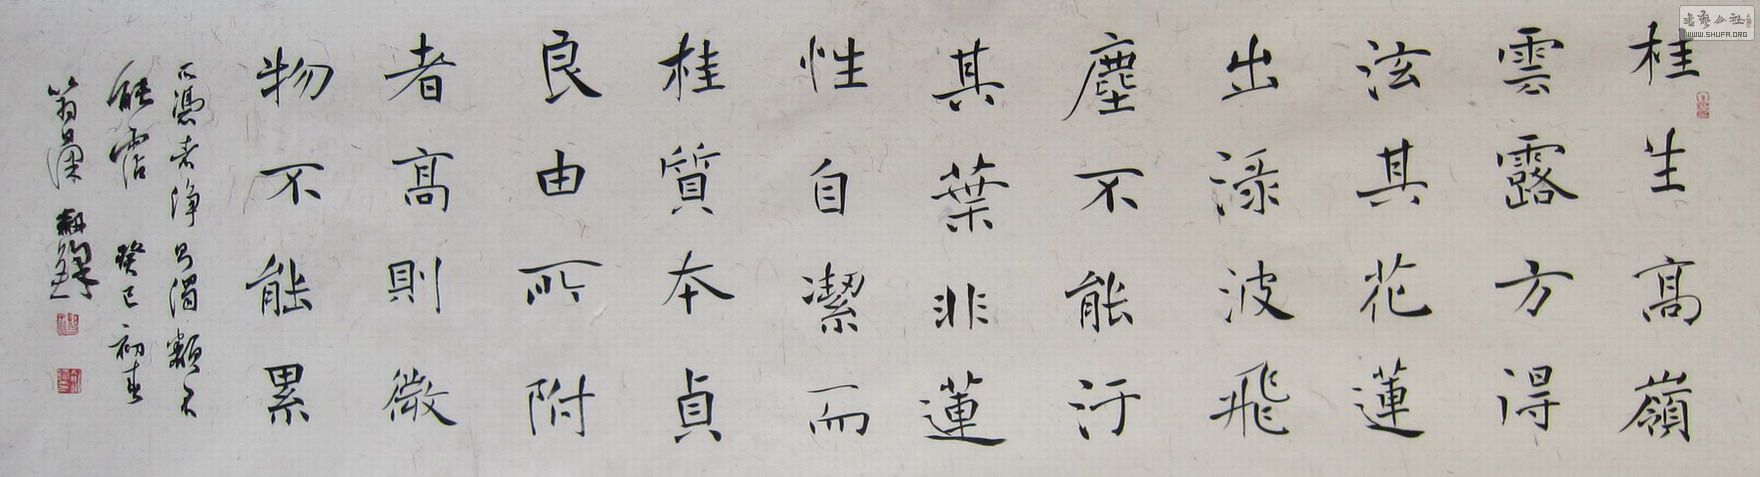 桂生高嶺
雲露方得
泫其花蓮
出淥波飛
塵不能汙
其葉非蓮
性自潔而
桂質本貞
良由所附
者高則微
物不能累
所憑者淨則濁類不
能霑 癸巳初春
書藝公社
WWW.SHUFA.ORG